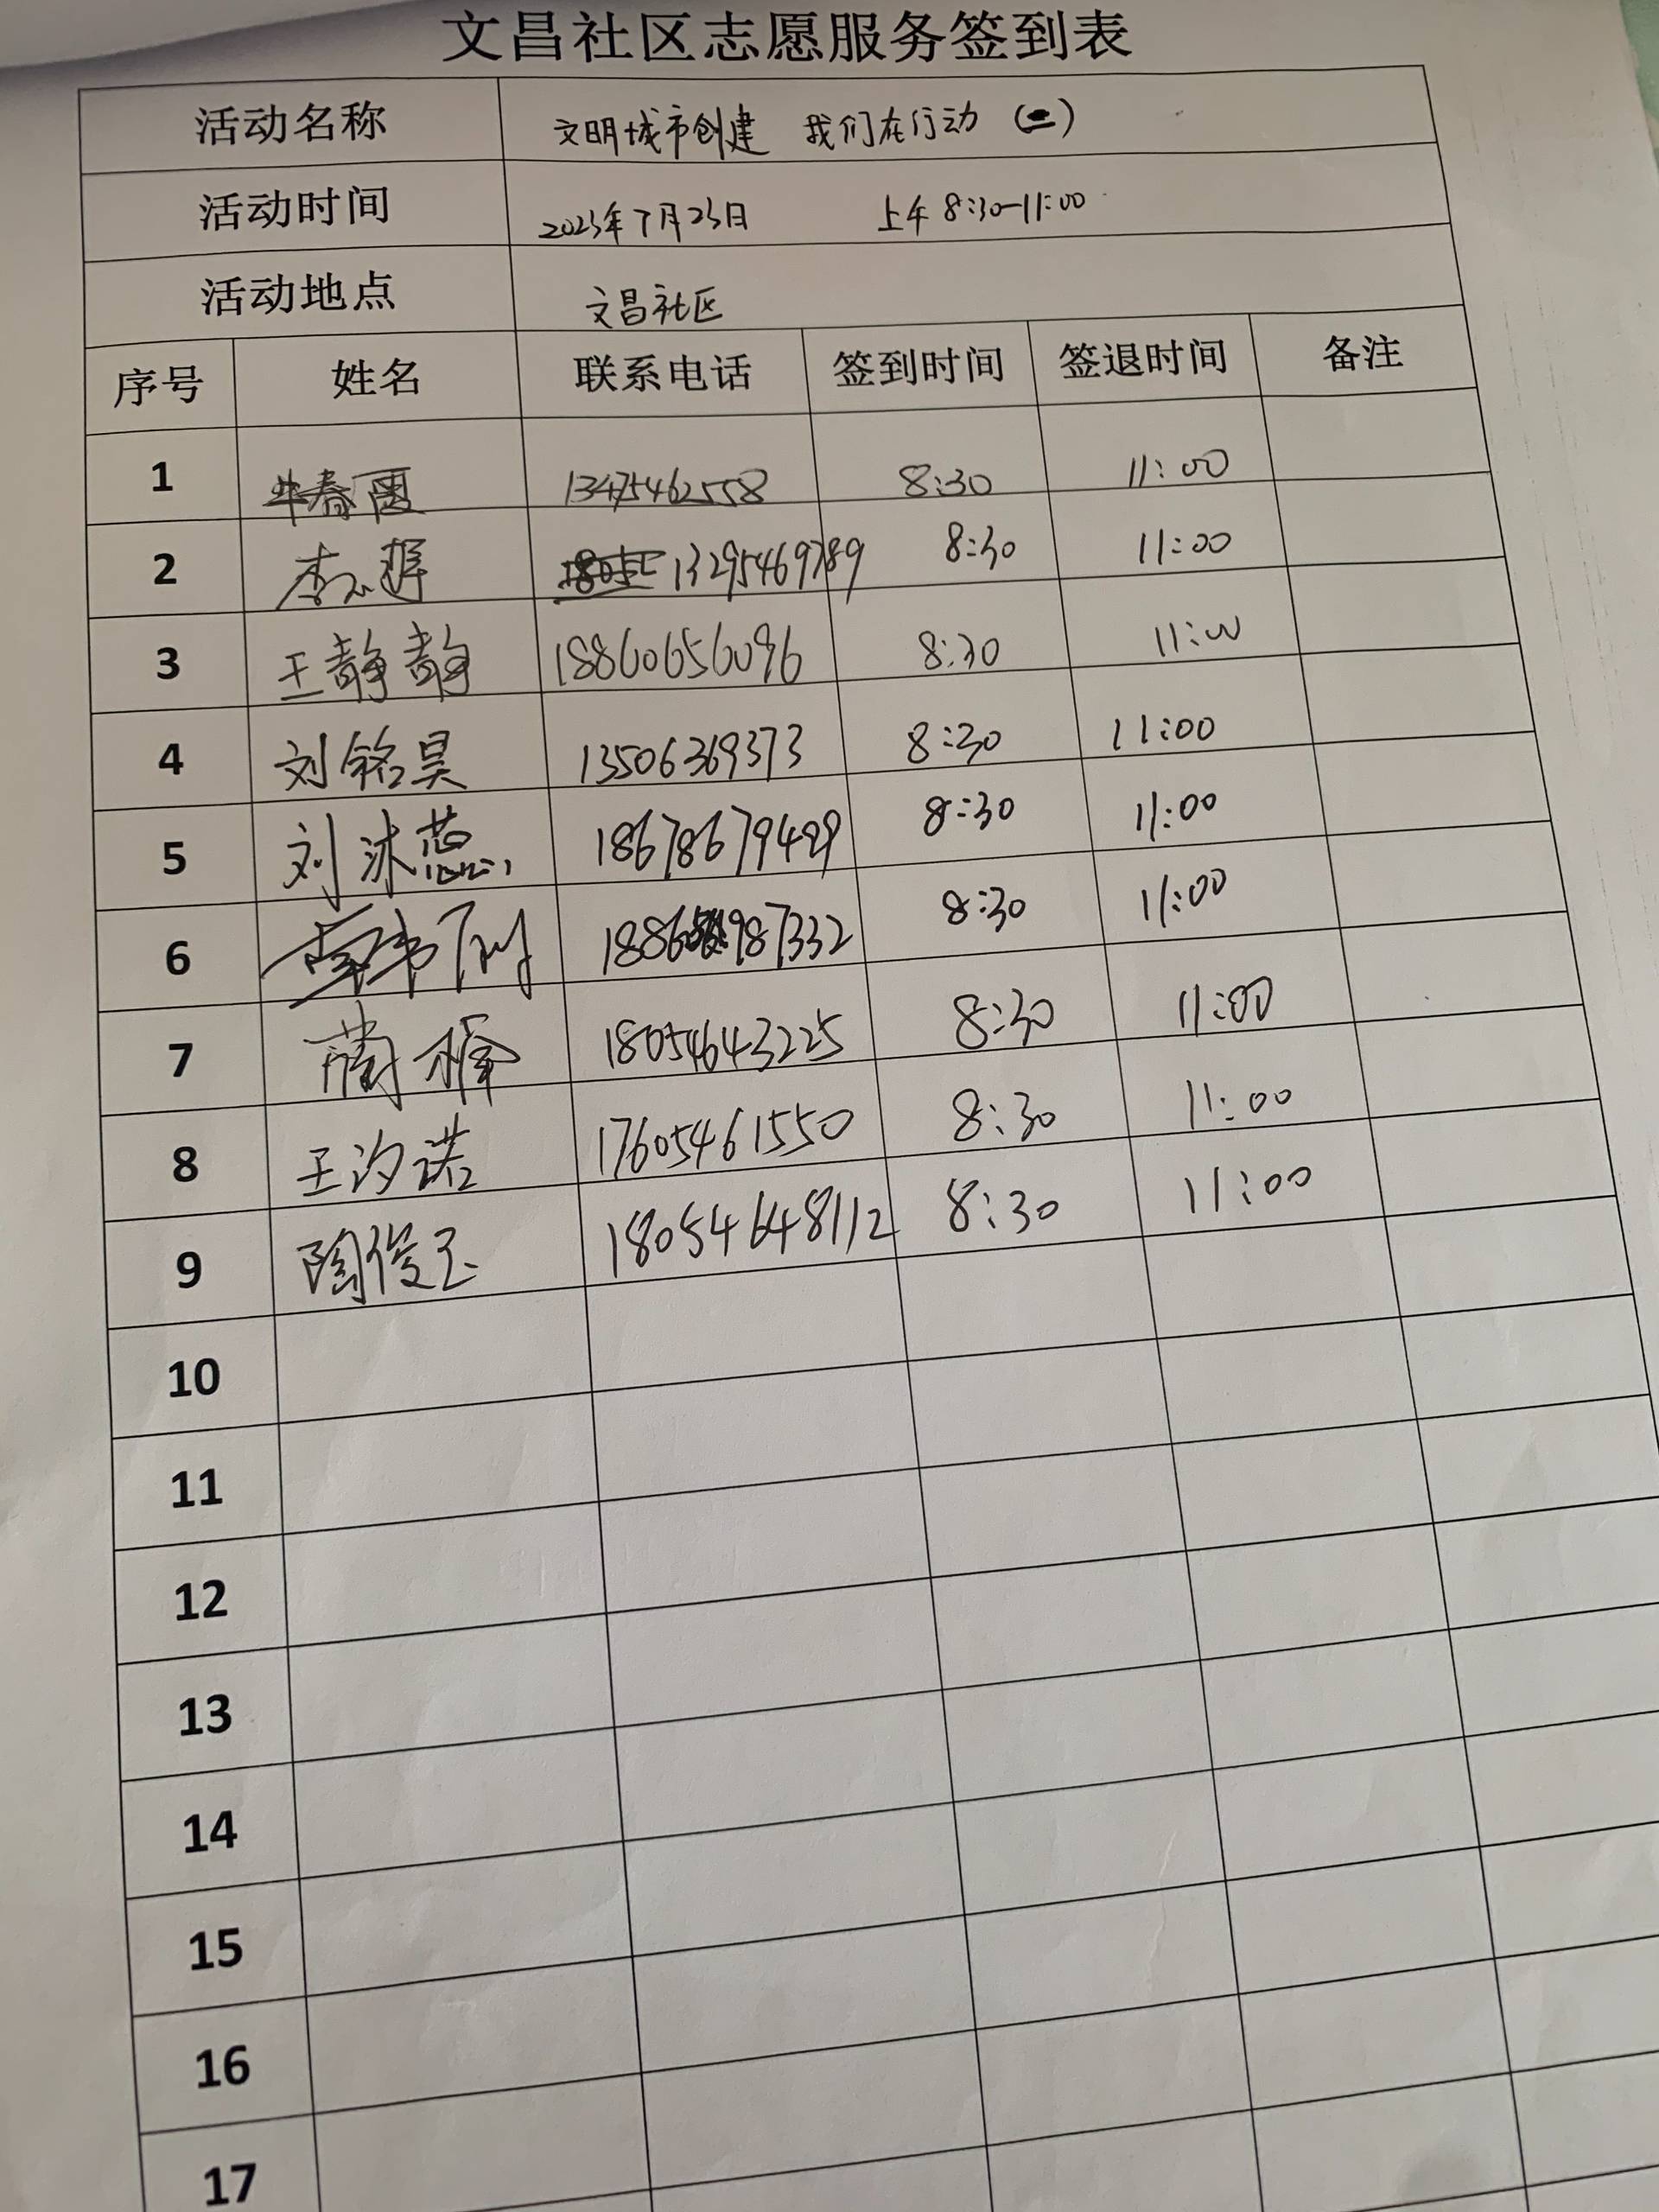 文昌社区志愿服务签到表
活动名称 文明城市创建 我们在行动（二）
活动时间 2023年7月23日 上午 8:30-11:00
活动地点 文昌社区
序号 姓名 联系电话 签到时间 签退时间 备注
1 牛春雨 13475462558 8:30 11:00
2 13295469789 8:30 11:00
3 王静静 18860656096 8:30 11:00
4 刘铭昊 13506369373 8:30 11:00
5 刘沐蕊 18678679499 8:30 11:00
6 8:30 11:00
7 蔺 18054643225 8:30 11:00
8 王汐诺 17605461550 8:30 11:00
9 陶俊玉 18054648112 8:30 11:00
10
11
12
13
14
15
16
17